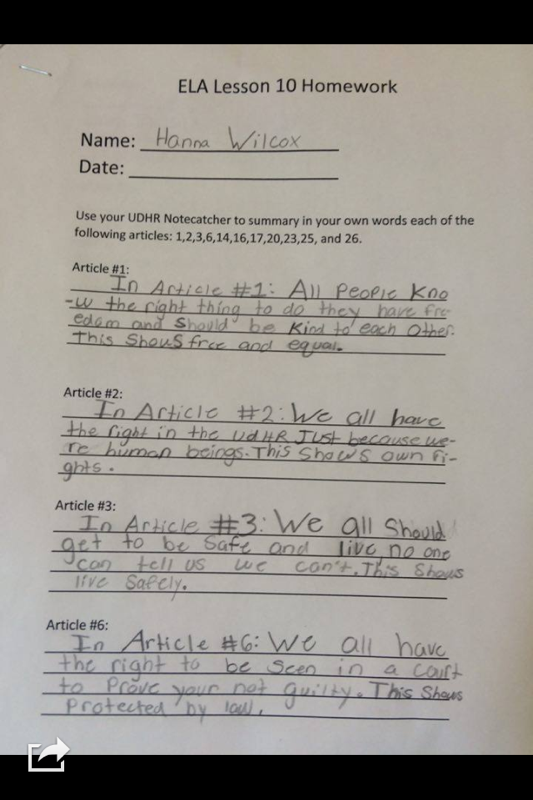 ELA Lesson 10 Homework
Name: Hanna Wilcox
Date:
Use your UDHR Notecatcher to summary in your own words each of the
following articles: 1,2,3,6,14,16,17,20,23,25, and 26.
Article #1:
In Article #1: All People Kno
-w the right thing to do they have fre
edom and should be kind to each other.
This Shows free and equal.
Article #2:
In Article #2: We all have
the right in the UdHR Just because we-
re human beings. This Shows own ri-
ghts.
Article #3:
In Article #3: We all Should
get to be safe and live, no one
can tell us we can't. This Shows
live Safely.
Article #6:
In Article #6: We all have
the right to be seen in a court
to Prove your not guilty. This Shows
Protected by law.